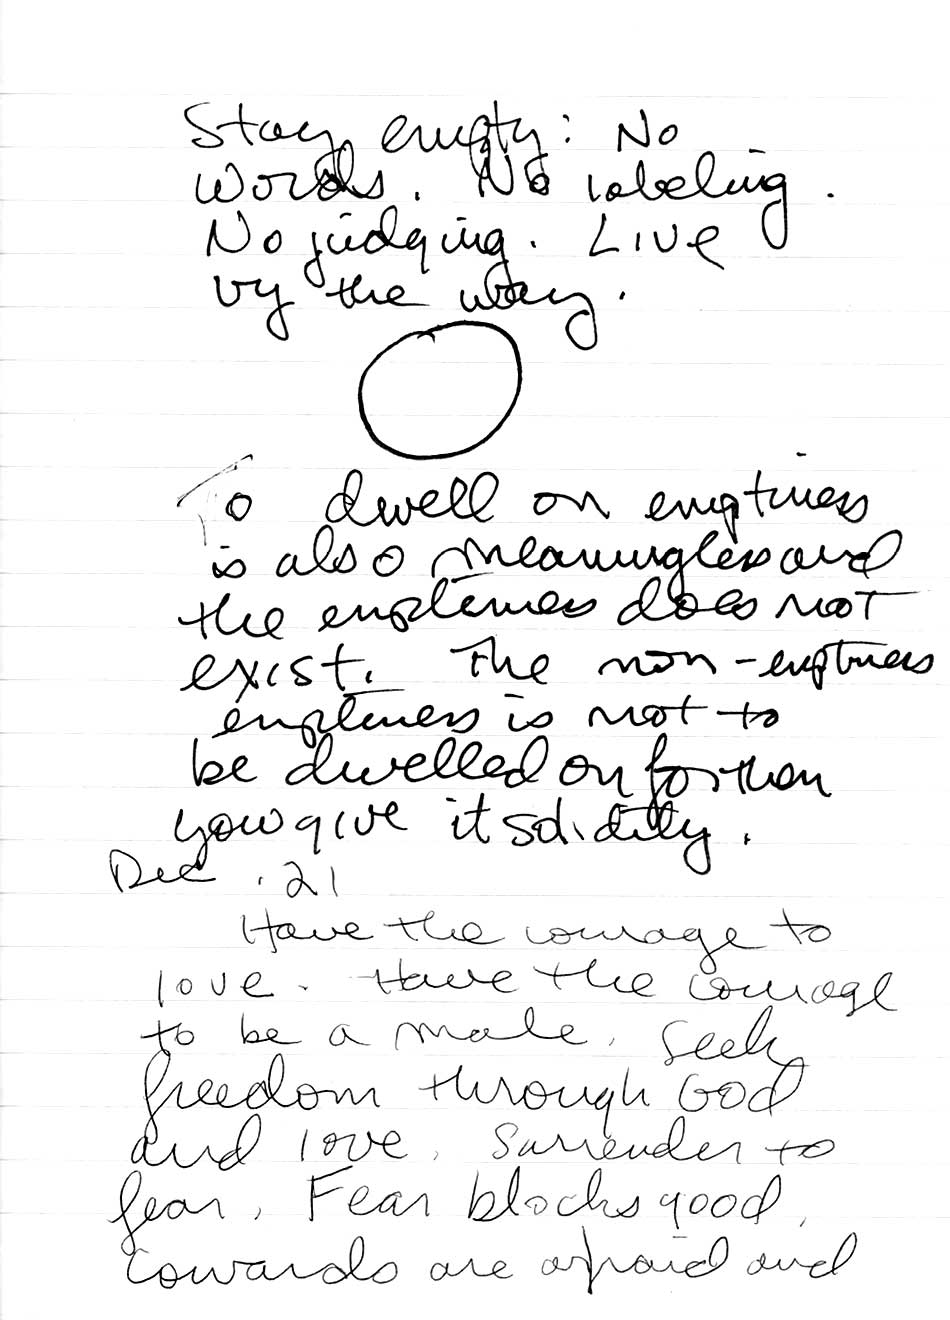 Stay empty: No
words. No labeling.
No judging. Live
by the way.
To dwell on emptiness
is also meaningless and
the emptiness does not
exist. The non-emptiness
emptiness is not to
be dwelled on for then
you give it solidity.
Dec. 21
Have the courage to
love. Have the courage
to be a male. Seek
freedom through God
and love. Surrender to
fear. Fear blocks good.
Cowards are afraid and